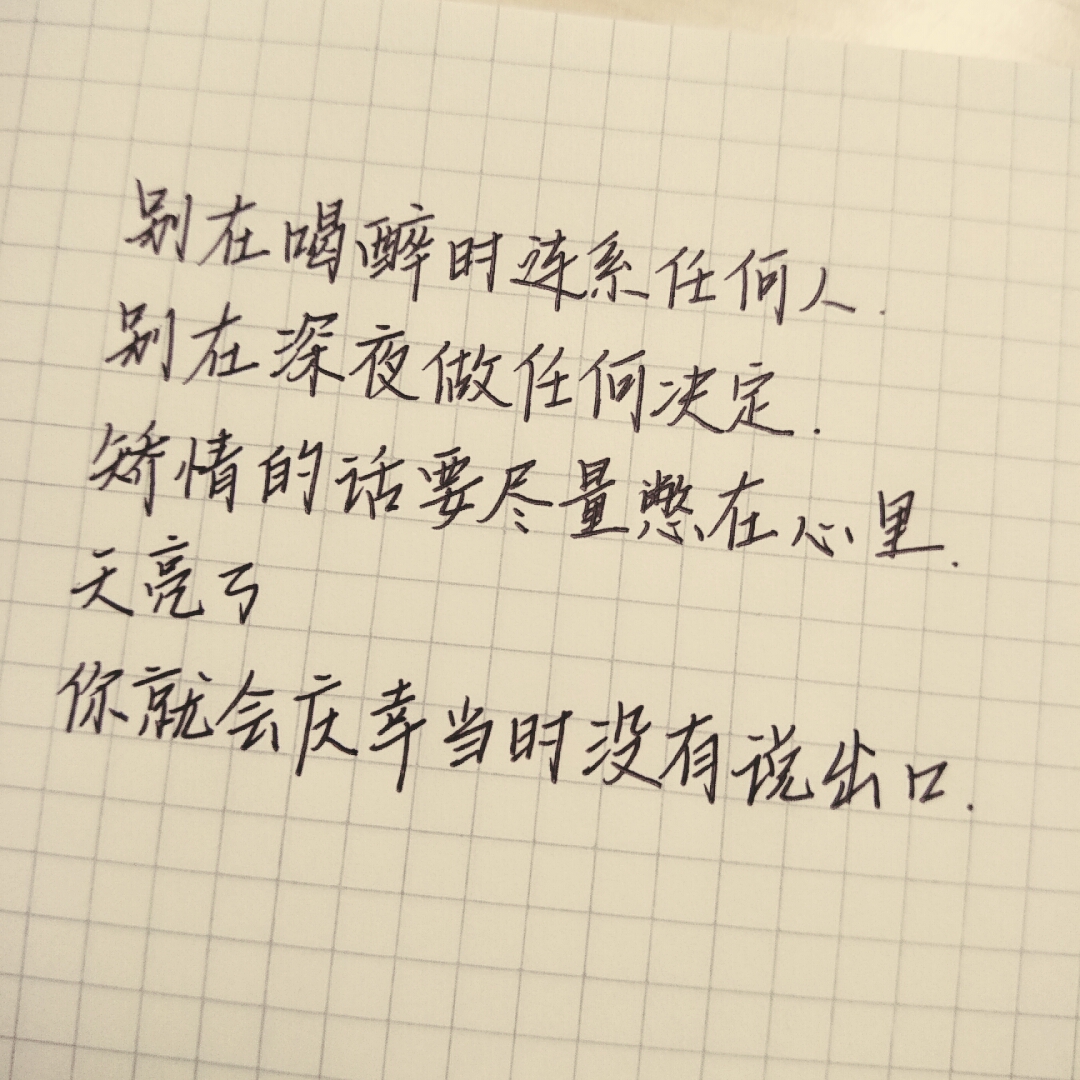 别在喝醉时连系任何人.
别在深夜做任何决定.
矫情的话要尽量憋在心里.
天亮了
你就会庆幸当时没有说出口.